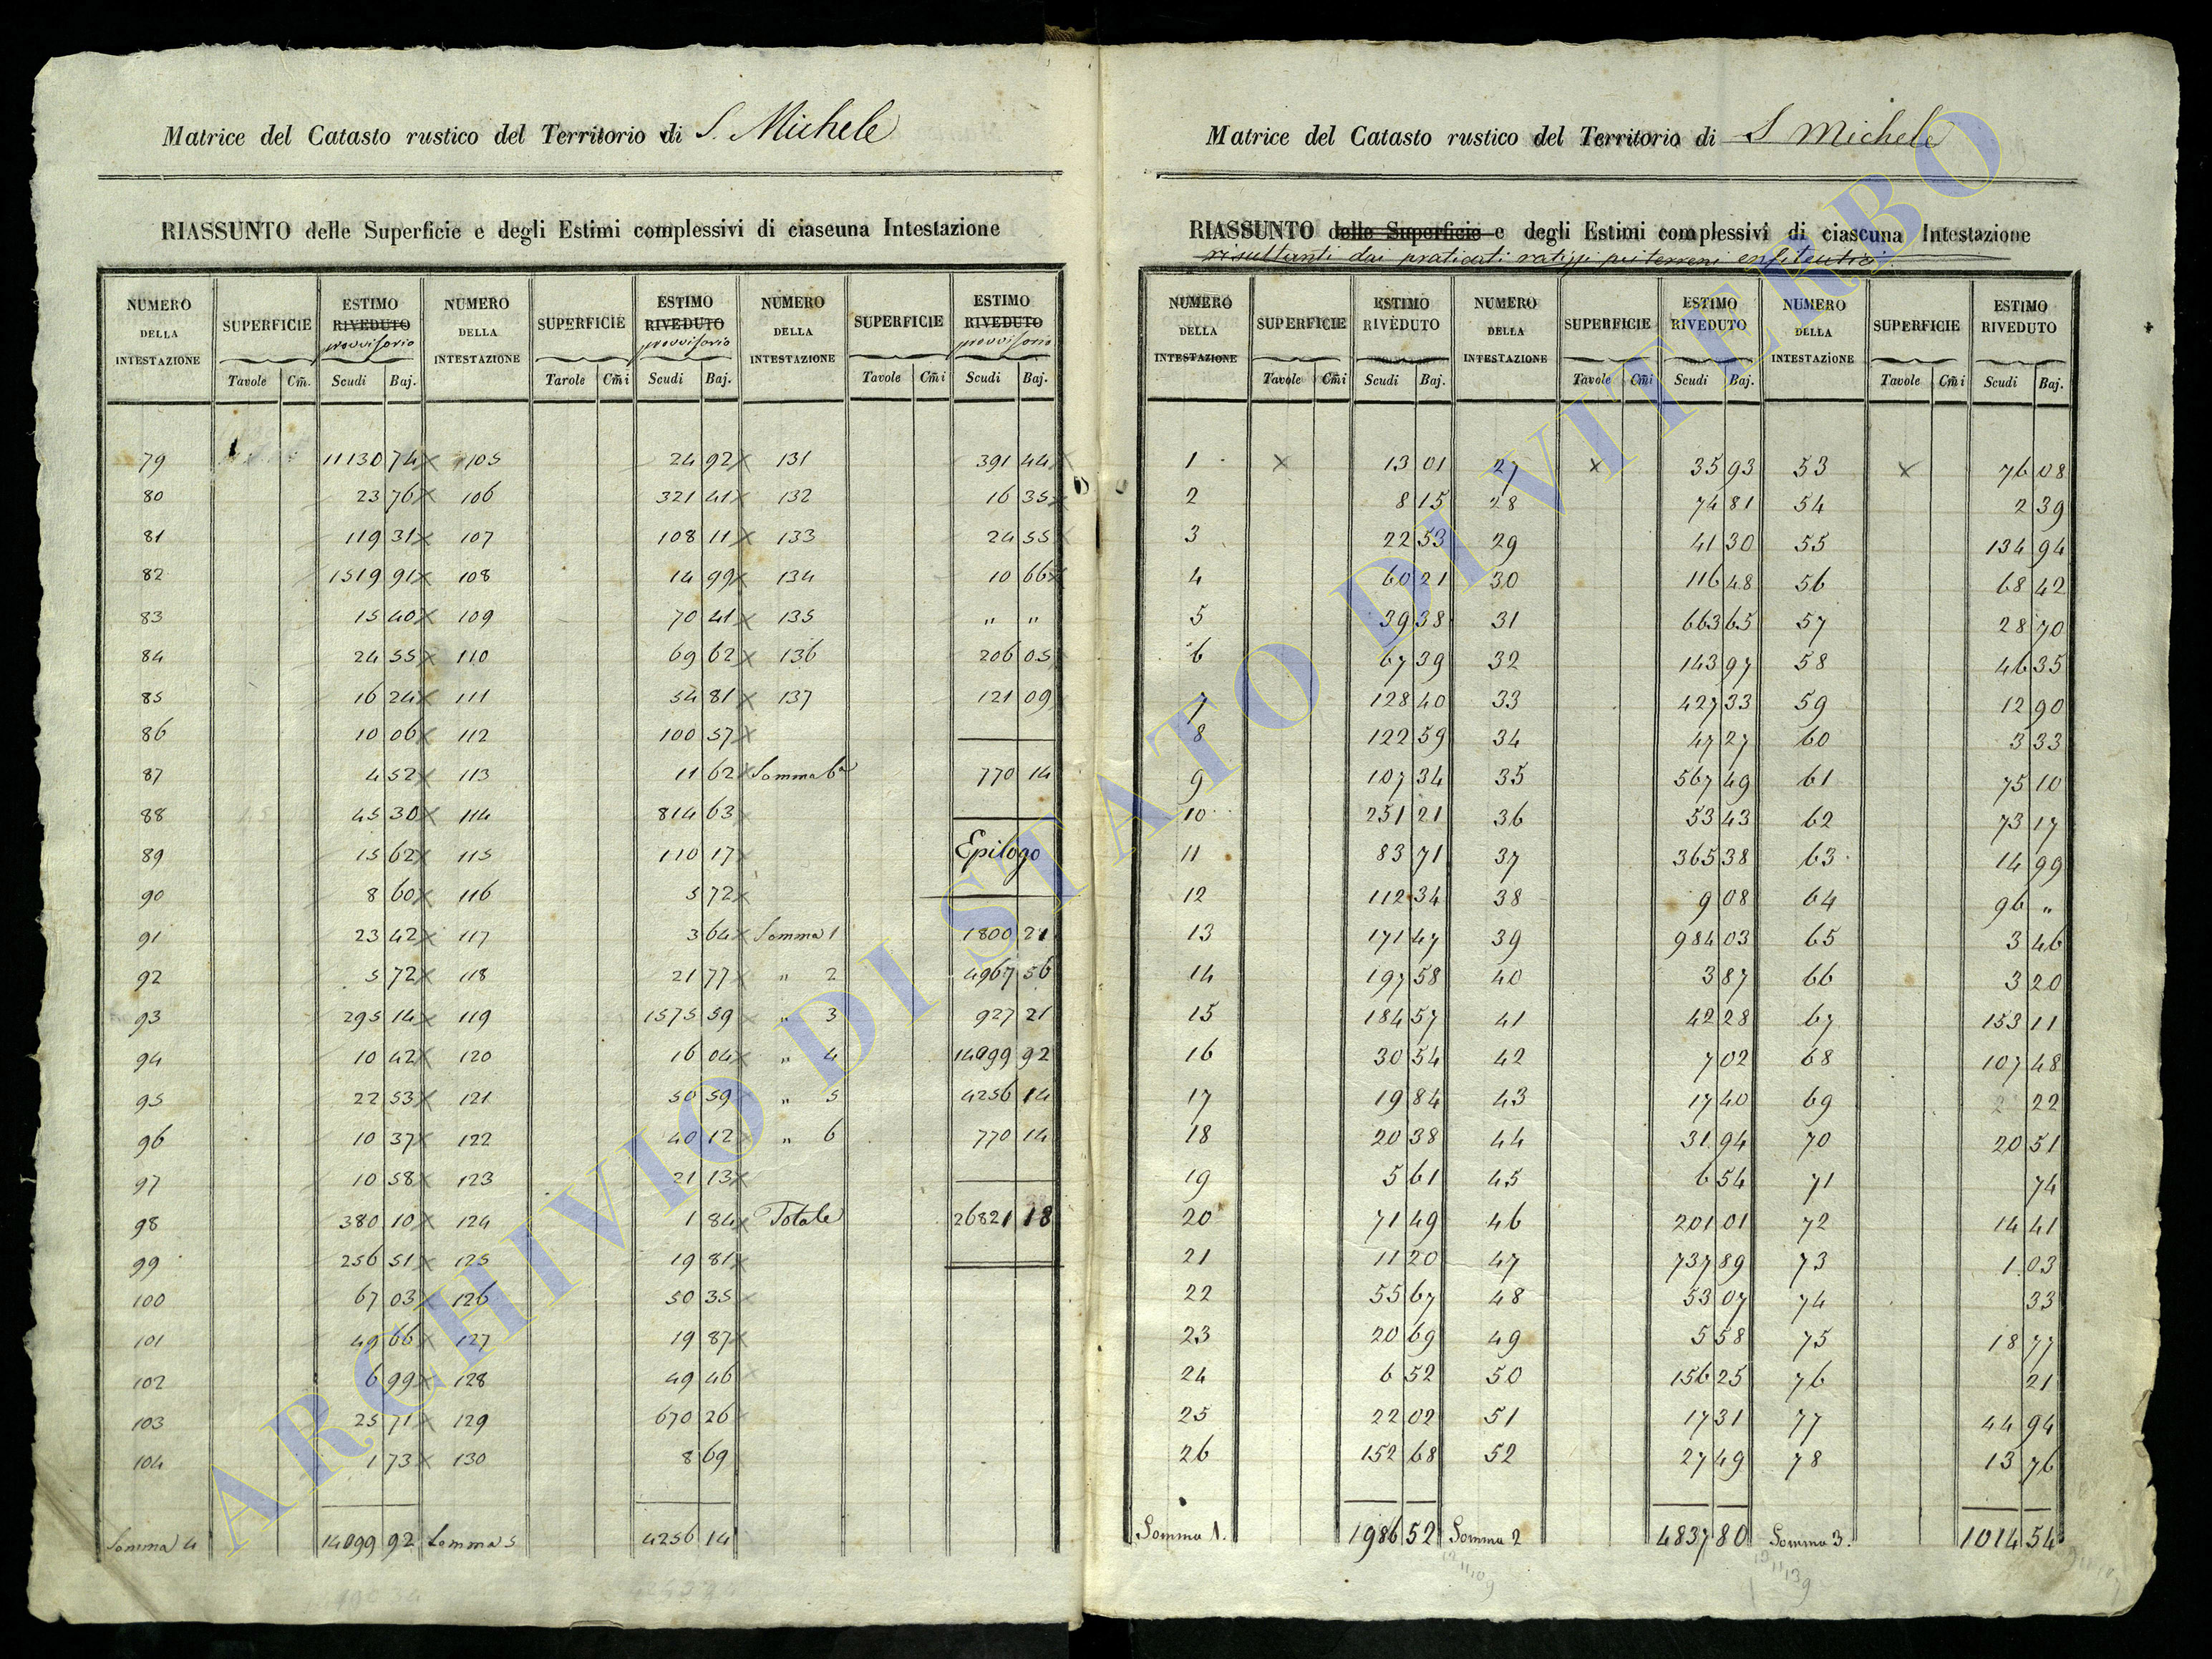 Matrice del Catasto rustico del Territorio di S. Michele
RIASSUNTO delle Superficie e degli Estimi complessivi di ciaseuna Intestazione
NUMERO DELLA INTESTAZIONE SUPERFICIE ESTIMO RIVEDUTO provvisorio NUMERO DELLA INTESTAZIONE SUPERFICIE ESTIMO RIVEDUTO provvisorio NUMERO DELLA INTESTAZIONE SUPERFICIE ESTIMO RIVEDUTO provvisorio
Tavole Cm̄. Scudi Baj. Tarole Cm̄i Scudi Baj. Tavole Cm̄i Scudi Baj.
79 11130 74 105 24 92 131 391 44
80 23 76 106 321 41 132 16 35
81 119 31 107 108 11 133 24 55
82 1519 91 108 14 99 134 10 66
83 15 40 109 70 41 135 " "
84 24 55 110 69 62 136 206 05
85 16 24 111 54 81 137 121 09
86 10 06 112 100 57
87 4 52 113 11 62 Somma 6a 770 14
88 45 30 114 814 63
89 15 62 115 110 17 Epilogo
90 8 60 116 5 72
91 23 42 117 3 64 Somma 1 1800 21
92 5 72 118 21 77 " 2 4967 56
93 295 14 119 1575 59 " 3 927 21
94 10 42 120 16 04 " 4 14099 92
95 22 53 121 50 59 " 5 4256 14
96 10 37 122 40 12 " 6 770 14
97 10 58 123 21 13
98 380 10 124 1 84 Totale 26821 18
99 256 51 125 19 81
100 67 03 126 50 35
101 49 66 127 19 87
102 6 99 128 49 46
103 25 71 129 670 26
104 1 73 130 8 69
Somma 4 14099 92 Somma 5 4256 14
Matrice del Catasto rustico del Territorio di S Michele
RIASSUNTO delle Superficie e degli Estimi complessivi di ciascuna Intestazione
risultanti dai praticati ratizzi pei terreni enfiteutici
NUMERO DELLA INTESTAZIONE SUPERFICIE ESTIMO RIVEDUTO NUMERO DELLA INTESTAZIONE SUPERFICIE ESTIMO RIVEDUTO NUMERO DELLA INTESTAZiONE SUPERFICIE ESTIMO RIVEDUTO
Tavole Cm̄i Scudi Baj. Tavole Cm̄i Scudi Baj. Tavole Cm̄i Scudi Baj.
1 x 13 01 27 x 35 93 53 x 76 08
2 8 15 28 74 81 54 2 39
3 22 53 29 41 30 55 134 94
4 60 21 30 116 48 56 68 42
5 39 38 31 663 65 57 28 70
6 67 39 32 143 97 58 46 35
7 128 40 33 427 33 59 12 90
8 122 59 34 47 27 60 3 33
9 107 34 35 567 49 61 75 10
10 251 21 36 53 43 62 73 17
11 83 71 37 365 38 63 14 99
12 112 34 38 9 08 64 96 "
13 171 47 39 984 03 65 3 46
14 197 58 40 3 87 66 3 20
15 184 57 41 42 28 67 153 11
16 30 54 42 7 02 68 107 48
17 19 84 43 17 40 69 22
18 20 38 44 31 94 70 20 51
19 5 61 45 6 54 71 74
20 71 49 46 201 01 72 14 41
21 11 20 47 737 89 73 1 03
22 55 67 48 53 07 74 33
23 20 69 49 5 58 75 18 77
24 6 52 50 156 25 76 21
25 22 02 51 17 31 77 44 94
26 152 68 52 27 49 78 13 76
Somma 1. 1986 52 Somma 2 4837 80 Somma 3. 1014 54
ARCHIVIO DI STATO DI VITERBO